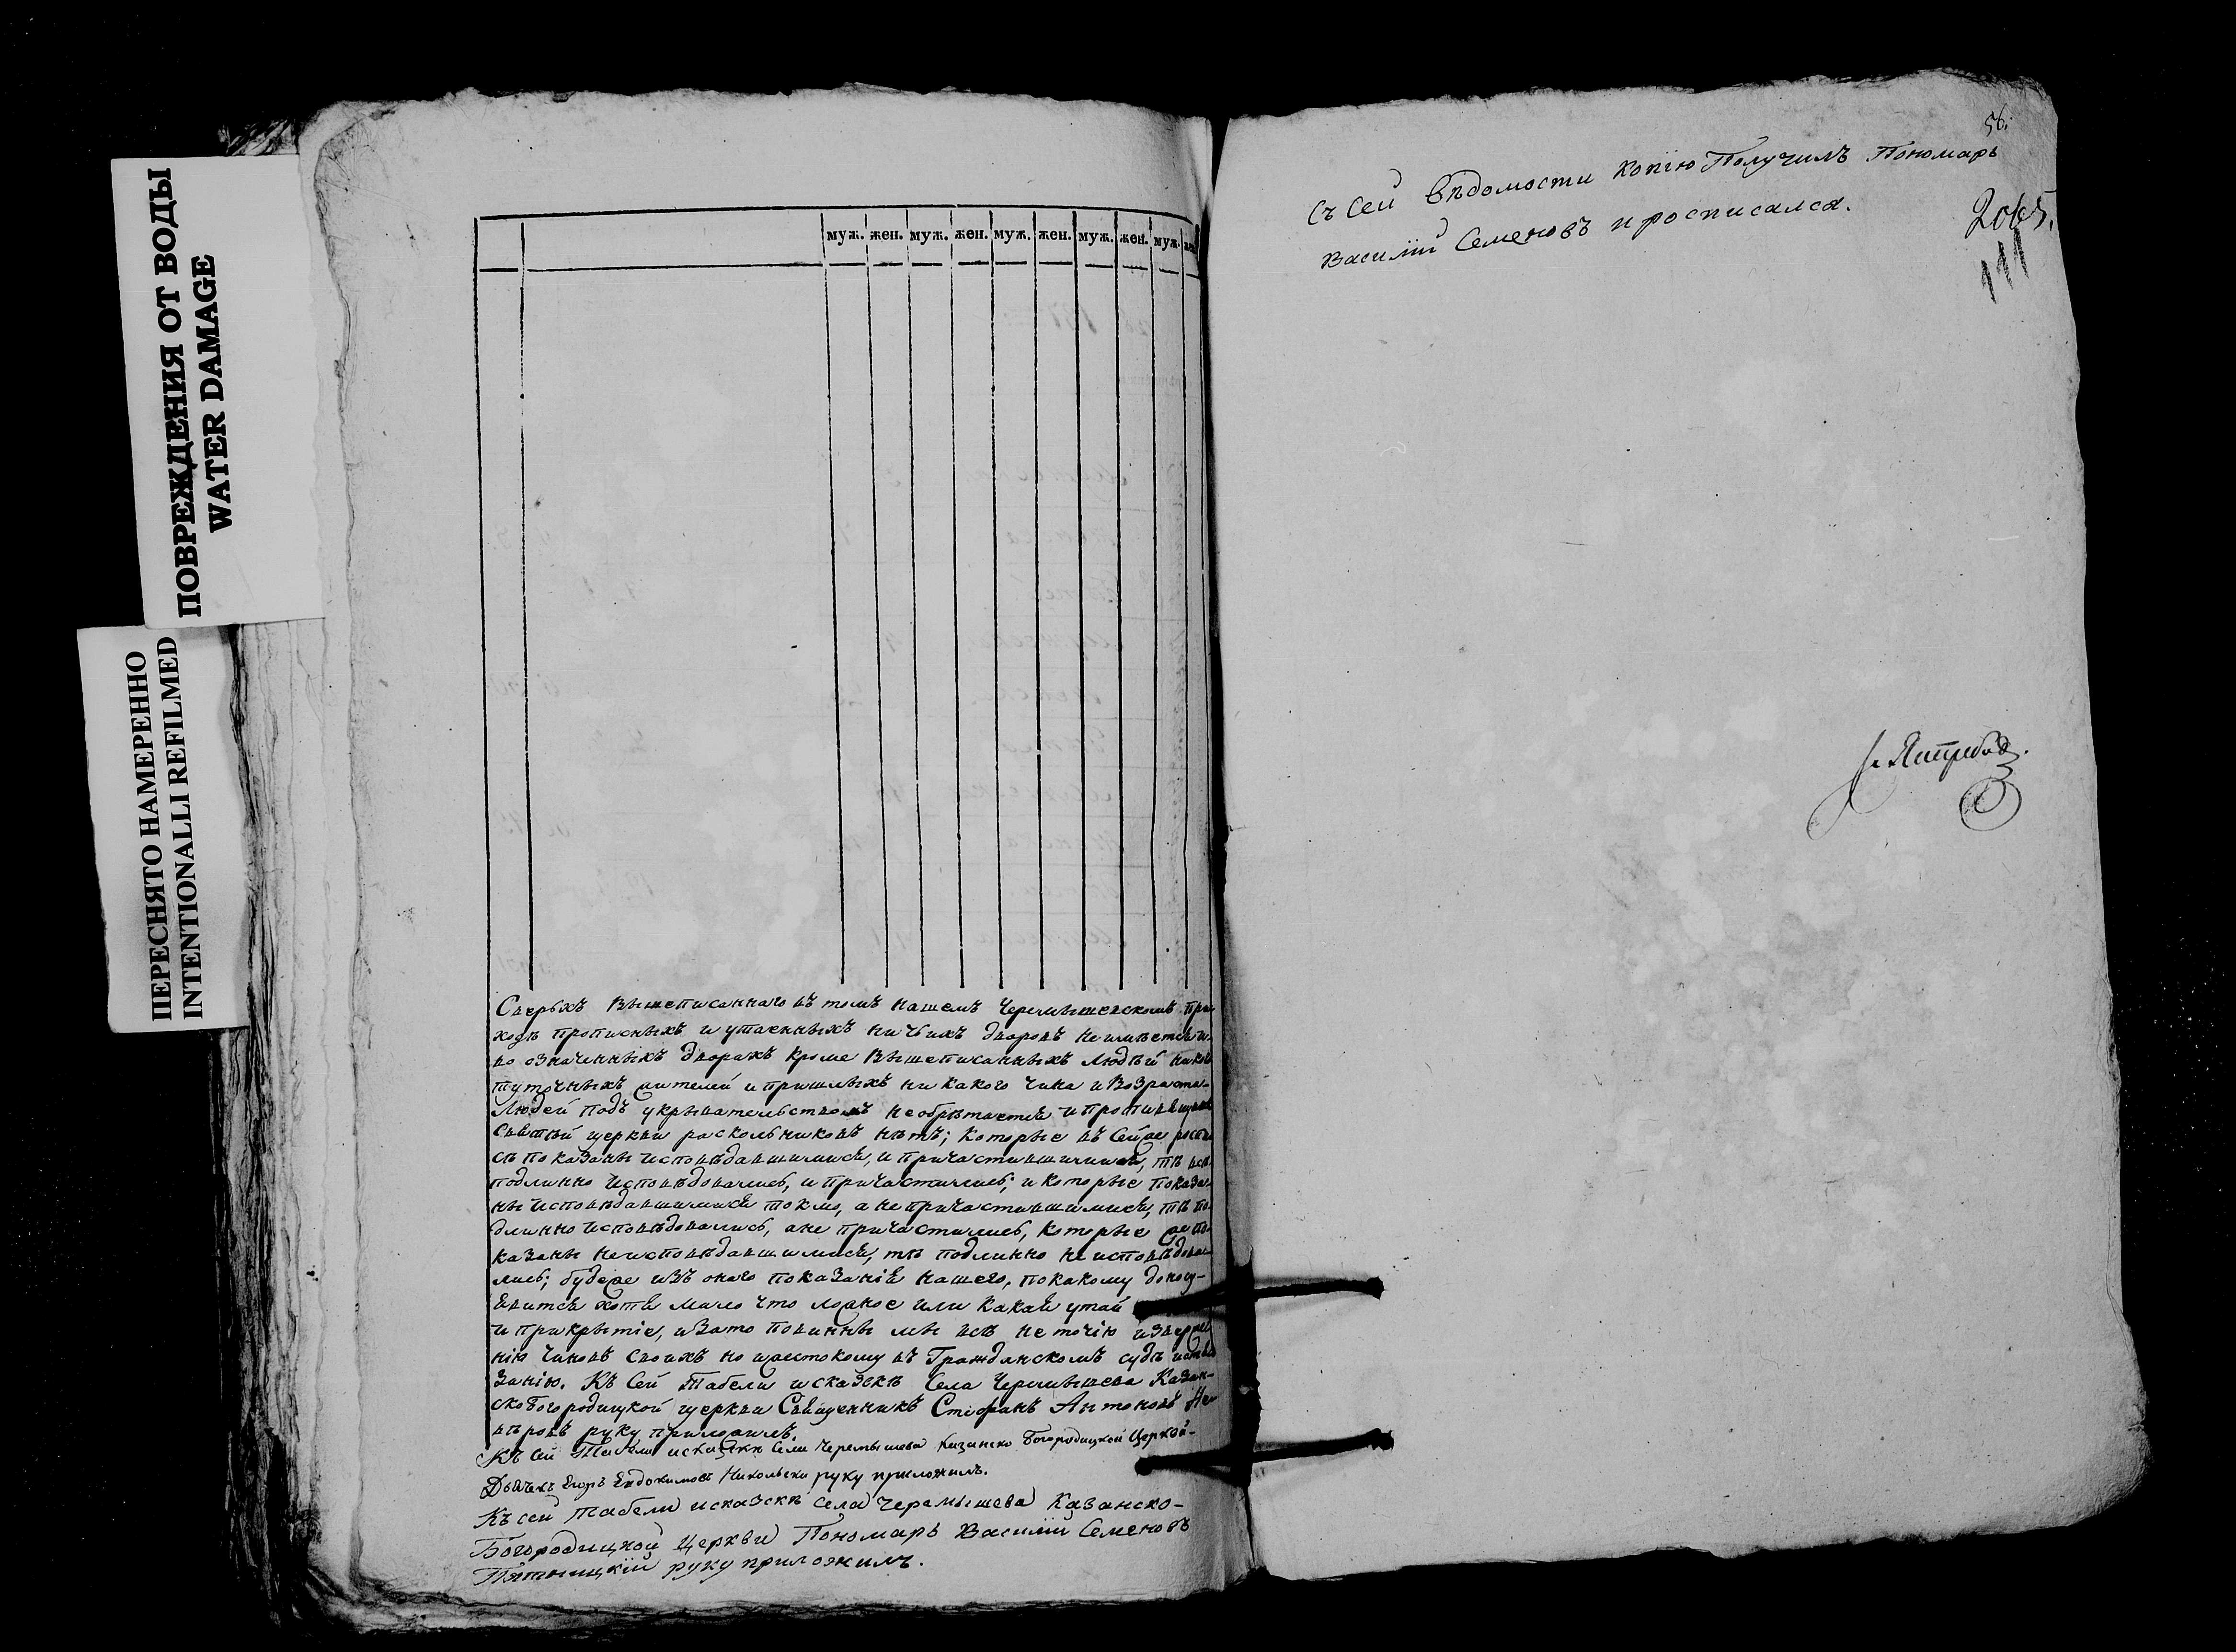 ПОВРЕЖДЕНИЯ ОТ ВОДЫ
WATER DAMAGE
ПЕРЕСНЯТО НАМЕРЕННО
INTENTIONALLI REFILMED
муж. жен. муж. жен. муж. жен. муж. жен. муж.
Сверьхъ Вышеписаннаго въ томъ нашемъ Черемышевскомъ при-
ходѣ прописныхъ и утаенныхъ ничьихъ дворовъ неимѣется и
во означенныхъ дворахъ кроме Вышеписанныхъ Людѣй
жителей и пришлыхъ ни какого чина и Возраста
Людей подъ укрывательствомъ необрѣтается и
Святѣй церкви раскольниковъ нѣтъ; Которые въ Сей же роспи
сѣ показаны исповѣдавшимися, и причастившимися, тѣ всѣ
подлинно исповѣдовались, и причастились; и которые показа
ны исповѣдавшимися токмо, а не причастившимися, тѣ по
длинно исповѣдовались, а не причастились, Которые же по
казаны неисповѣдавшимися, тѣ подлинно не исповѣдова
лись; будеже изъ онаго показанія нашего, покакому доносу
явится хотя мало что ложное или какая утай
и прикрытіе, и зато повинны мы всѣ не точію изверже
нію чиновъ своихъ но и жестокому въ Гражданскомъ судѣ истя
занію. Къ Сей Табели и сказкѣ Села Черемышева Казан-
скобогородицкой церкви Священникъ Стефанъ Антоновъ Не
вѣровъ руку приложилъ.
Къ сей Табели и сказки Села Черемышева Казанско Богородицкой Церкви-
Дьячекъ Егоръ Евдокимовъ Никольски руку приложилъ.
Къ сей табели исказскѣ села Черемышева Казанско-
Богородицкой Церкви Пономарь Василiй Семеновъ
Пятницкiй руку приложилъ.
56.
Съ сей вѣдомости копiю Получилъ Пономарь
Василiй Семеновъ и росписался.
111